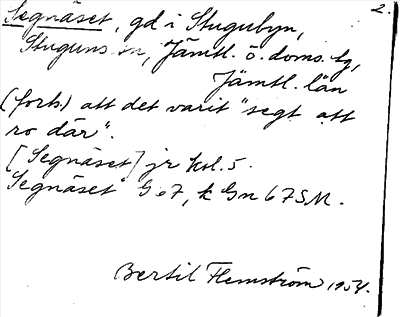 2.
Segnäset, gd i Stugubyn,
Stuguns sn, Jämtl. ö. doms. tg,
Jämtl. län
(forts.) att det varit "segt att
ro där".
[Segnäset] jr kol. 5.
Segnäset G 67, k Gn 67 SM.
Bertil Flemström 1954.